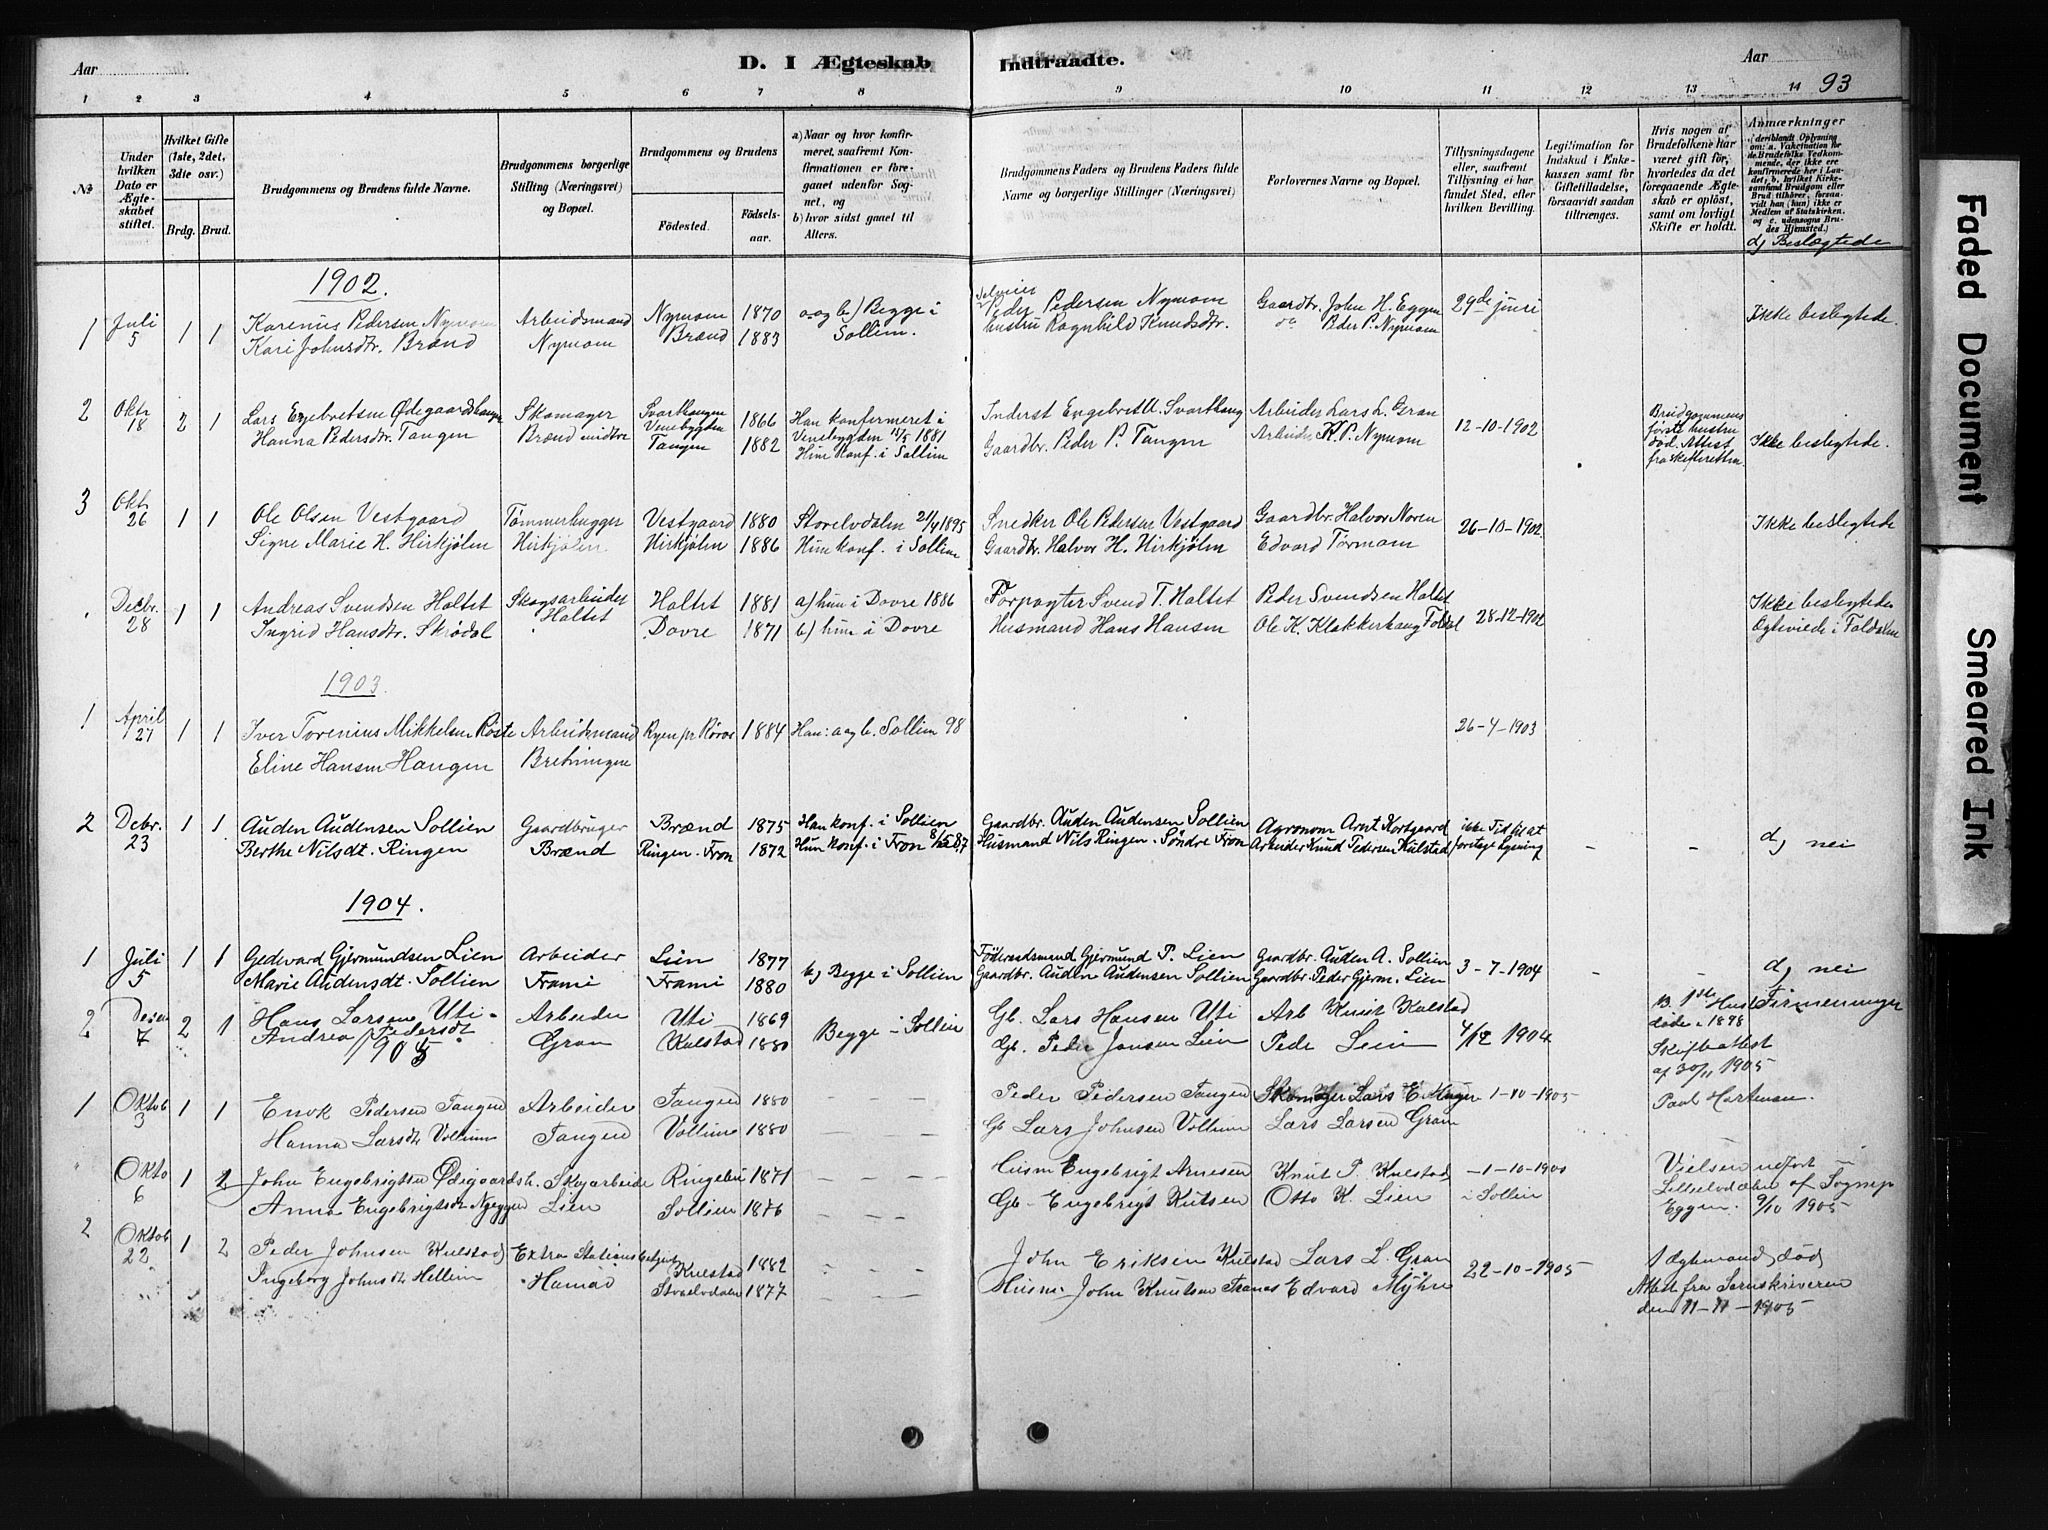 Aar
D. I Ægteskab
Indtraadte.
Aar
93
1 2 3 4 5 6 7 8 9 10 11 12 13 14
№
Under hvilken Dato er Ægteskabet stiftet.
Hvilket Gifte (1ste, 2det, 3die osv.)
Brdg. Brud.
Brudgommens og Brudens fulde Navne.
Brudgommens borgerlige Stilling (Næringsvei) og Bopæl.
Brudgommens og Brudens
Fødested.
Fødselsaar.
a) Naar og hvor konfirmeret, saafremt Konfirmationen er foregaaet udenfor Sognet, og
b) hvor sidst gaaet til Alters.
Brudgommens Faders og Brudens Faders fulde Navne og borgerlige Stillinger (Næringsvei)
Forlovernes Navne og Bopæl.
Tillysningsdagene eller, saafremt Tillysning ei har fundet Sted, efter hvilken Bevilling.
Legitimation for Indskud i Enkekassen samt for Giftetilladelse, forsaavidt saadan tiltrænges.
Hvis nogen af Brudefolkene har været gift før, hvorledes da det foregaaende Ægteskab er opløst, samt om lovligt Skifte er holdt.
Anmærkninger
d) Beslægtede
1902.
1 Juli 5 1 1 Karenius Pedersen Nymoen Arbeidsmand Nymoen 1870 a og b) Begge i Peder Pedersen Nymoen Gaardbr. John H. Eggen 29de juni Ikke beslegtede.
Kari Johnsdtr. Brænd Nymoen Brænd 1883 Sollien. hustru Ragnhild Knudsdtr. Peder P. Nymoen
2 Oktr 18 2 1 Lars Egebretsen Ødegaardshaugen Skomager Svarthaugen Venebygden 1866 Han konfirmeret i Venebygden 1881 Inderst Engebret Svarthaug Arbeider Lars L. Gran 12-10-1902 Brudgommens første hustru død. Attest fra skifteretten Ikke beslegtede.
Hanna Pedersdtr. Tangen Brænd Tangen 1882 Hun konf. i Sollien Gaardbr. Peder P. Tangen Arbeider K. P. Nymoen
3 Oktr. 26 1 1 Ole Olsen Vestgaard Tømmerhugger Vestgaard 1880 Storelvdalen 21/4 1895 Snedker Ole Pedersen Vestgaard Gaardbr. Halvor Noren 26-10-1902 Ikke beslegtede
Signe Marie H. Hirkjølen Hirkjølen Hirkjølen 1886 Hun konf. i Sollien Gaardbr. Halvor H. Hirkjølen Edvard Tørmoen
Decbr. 28 1 1 Andreas Svendsen Holtet Skogsarbeider Holtet 1881 a) hun i Dovre 1886 Forpagter Svend T. Holtet Peder Svendsen Holtet 28-12-1902 Ikke beslegtede
Ingrid Hansdtr. Skrødal Holtet Dovre 1871 b) hun i Dovre Husmand Hans Hansen Ole K. Klokkerhaug Foldal Egteviede i Foldalen
1903.
1 April 27 1 1 Iver Torenius Mikkelsen Røste Arbeidsmand Ryen pr Røros 1884 Han: a og b. Sollien 98 26-4-1903
Eline Hansen Haugen Bretningen
2 Debr. 23 1 1 Auden Audensen Sollien Gaardbruger Brænd 1875 Han konf. i Sollien Gaardbr. Auden Audensen Sollien Agronom Arnt Kortgaard ikke Tid til at - - d) nei
Berthe Nilsdt. Ringen Brænd Ringen. Fron 1872 Hun konf. i Fron 8/5 87 Husmand Nils Ringen. Søndre Fron Arbeider Knud Pedersen Kulstad foretage lysning
1904.
1 Juli 5 1 1 Gedevard Gjermundsen Lien Arbeider Lien 1877 b) Begge i Sollien Føderaadsmand Gjermund P. Lien Gaardbr. Auden A. Sollien 3-7-1904 - - d) nei
Marie Audensdt. Sollien Frami Frami 1880 Gaardbr. Auden Audensen Sollien Gaardbr. Peder Gjerm. Lien
2 7 2 1 Hans Larsen Uti Arbeider Uti 1869 Begge i Sollien Gb. Lars Hansen Uti Arb Knut Kulstad 4/12 1904 B. 1ste Hust døde 1898 Firmenninger
Andrea Pedersdt Gran Kulstad 1880 Gb. Peder Jonsen Lien Peder Lien Skifteattest af 30/11 1905
1905
1 Oktob 3 1 1 Enok Pedersen Tangen Arbeider Tangen 1880 — — — Peder Pedersen Tangen Skomager Lars E 1-10-1905
Hanna Larsdt Vollum Tangen Vollum 1880 — — — Gb Lars Johnsen Vollum Lars Larsen Gran
" Okto 6 1 2 John Engebrigtsen Ødegaardsh. Skogarbeide Ringebu 1871 — — — Husm Engebrigt Arnesen Knut P. Kulstad -1-10-1905 Vielsen udført i
Anna Engebrigtsdt Nyeggen Lien Sollien 1876 — — — Gb - Engebrigt Knutsen Otto K. Lien i Sollien Lilleelvdalen af Sognep Eggen. 9/10 1905
2 Oktob 22 1 2 Peder Johnsen Kulstad Extra Stationsbetjent Kulstad 1882 — — — John Eriksen Kulstad Lars L. Gran 22-10-1905 1 Egtemand død
Ingeborg Johnsdt Hellum Hamar Storelvdalen 1877 — — — Husm. John Knutsen Edvard Myhre Attest fra Sorenskriveren den 11-11-1905
Faded Document
Smeared Ink